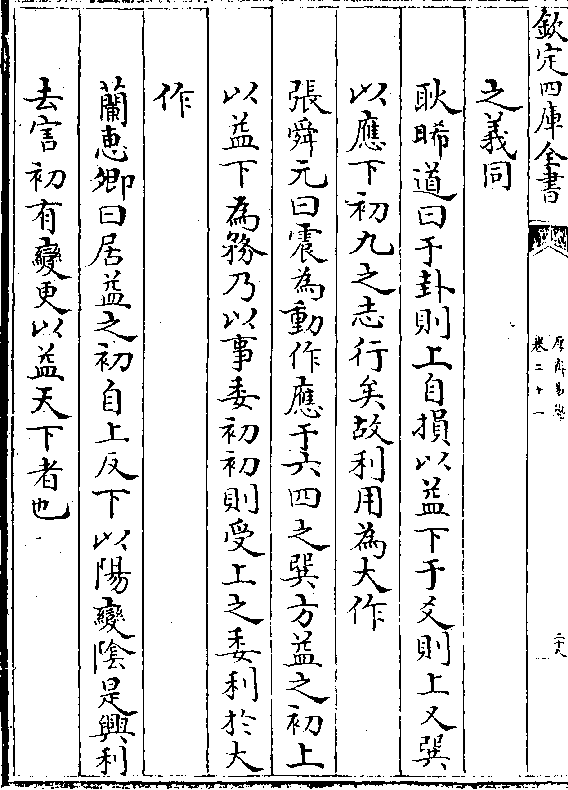 欽定四庫全書
厚齋易學
卷二十一
二十八
之義同
耿晞道曰于卦則上自損以益下于爻則上又巽
以應下初九之志行矣故利用為大作
張舜元曰震為動作應于六四之巽方益之初上
以益下為務乃以事委初初則受上之委利於大
作
蘭惠卿曰居益之初自上反下以陽變陰是興利
去害初有變更以益天下者也